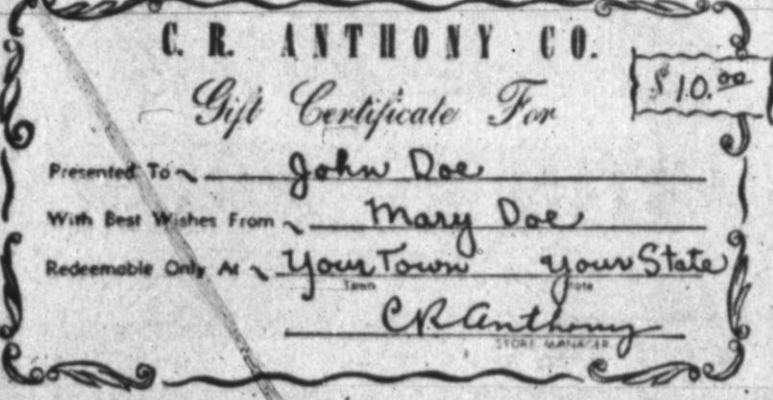 C. R. ANTHONY CO.
$10.00
Gift Certificate For
Presented To John Doe
With Best Wishes From Mary Doe
Redeemable Only At Your Town Your State
Town State
CR Anthony
STORE MANAGER